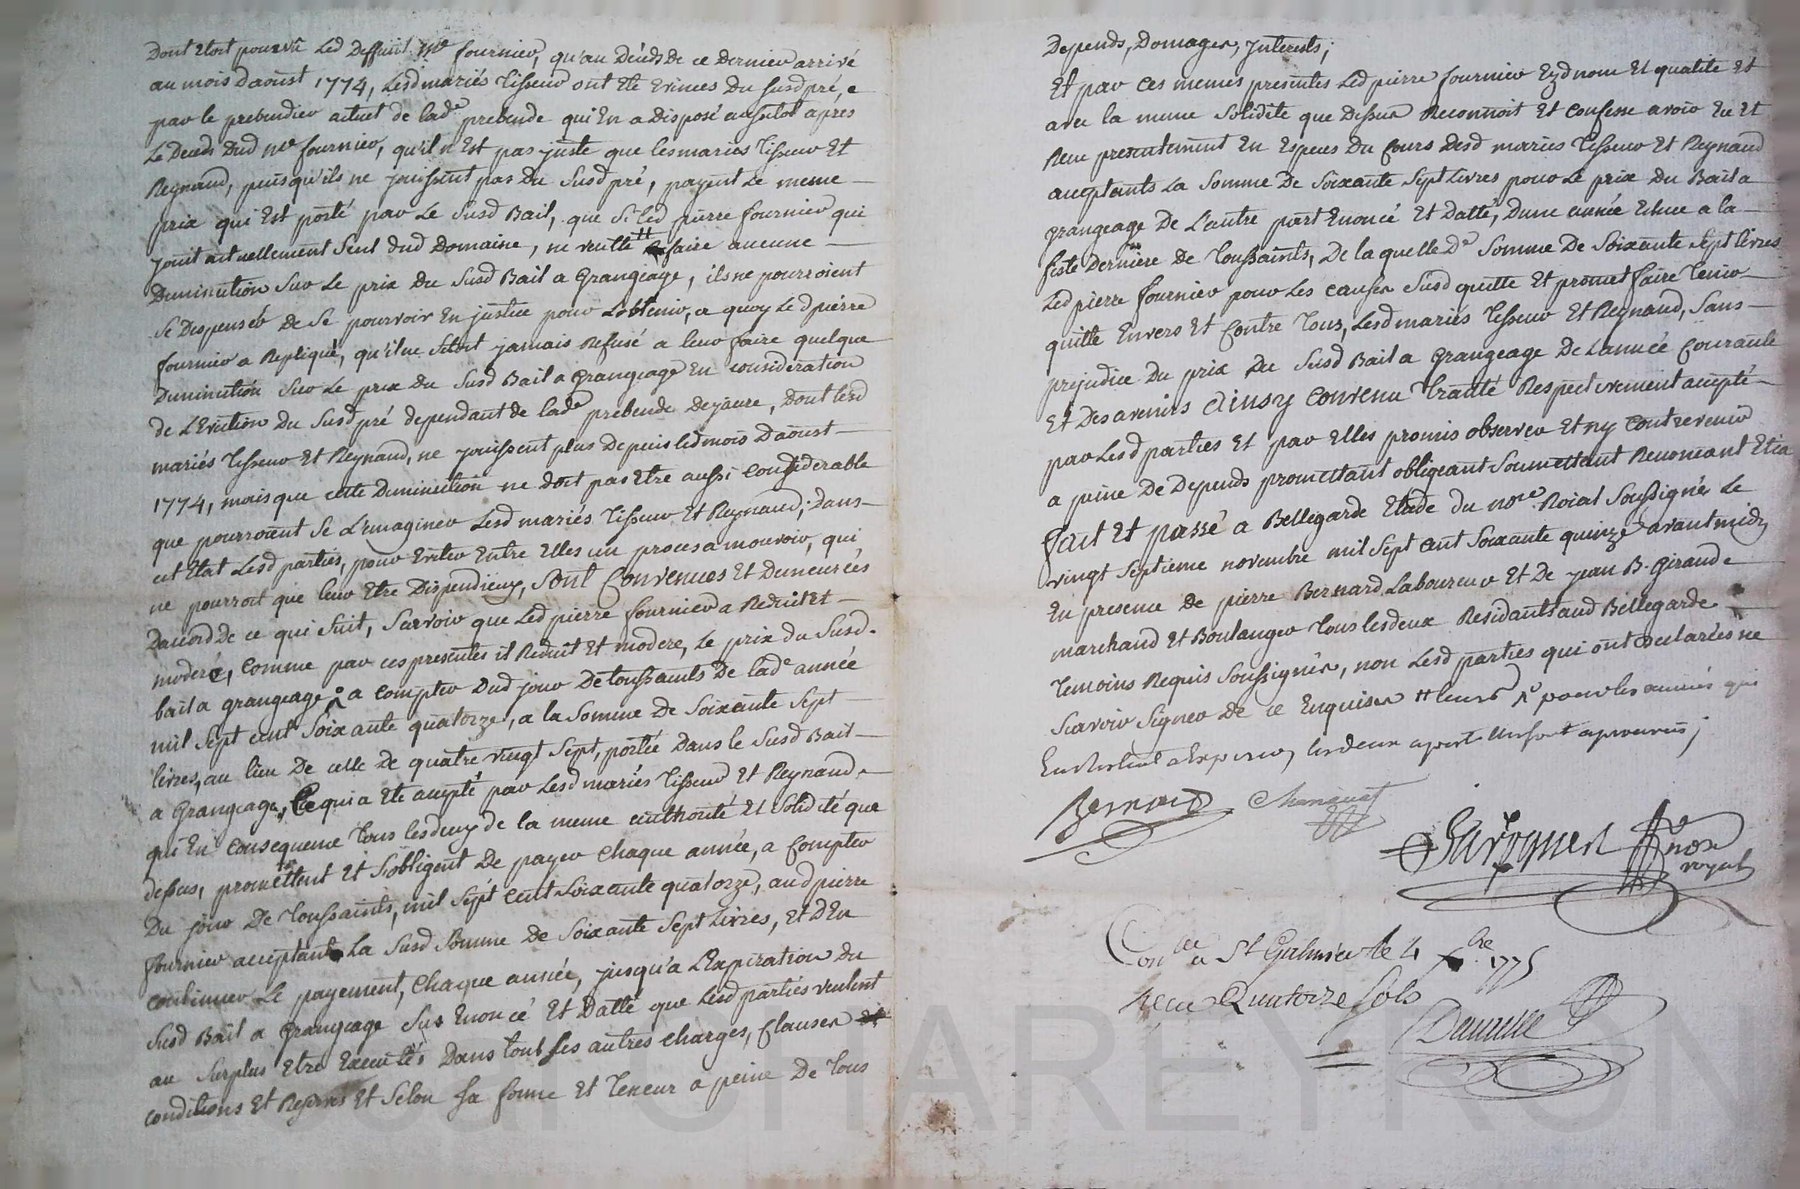 Dont Etoit pourvû Led Deffunt Me fournier, qu'au Décds de ce Dernier arrivé
au mois Daoust 1774, Lesd mariés Tisseur ont Eté Evinces Du susd pré,
par le prebendier actuel de lade prebende qui En a Disposé aussitot aprés
Le Deceds Dud Me fournier, qu'il n'Est pas juste que les mariés Tisseur Et
Reynaud, puisqu'ils ne jouissent pas du susd pré, payent Le meme
prix qui Est porté par Le susd Bail, que si led pierre fournier qui
jouit actuellement seul dud Domaine, ne veulle faire aucune
Diminution sur Le prix du susd Bail a Grangeage, ils ne pourroient
se Dispenser de se pourvoir En justice pour Lobtenir, a quoy Led pierre
fournier a Repliqué, qu'il ne setoit jamais Refusé a leur faire quelque
Diminution sur Le prix du susd Bail a Grangeage En consideration
de L'Eviction Du susd pré dependant de lade prebende Dejaure, Dont lesd
mariés Tisseur Et Reynaud, ne jouissent plus Depuis led mois Daoust
1774, mais que cette Diminution ne doit pas Etre aussi considerable
que pourroient se L'imaginer Lesd mariés Tisseur Et Reynaud; Dans
cet Etat Lesd parties, pour Eviter Entre Elles un proces a mouvoir, qui
ne pourroit que leur Etre Dispendieux, sont Convenues Et Demeurées
Daccord De ce qui suit, sçavoir que Led pierre fournier a Reduit Et
moderé, comme par ces presentes il Reduit Et modere, Le prix du susd.
bail a grangeage a compter Dud jour De toussaints De lade année
mil sept cent soixante quatorze, a la somme de soixante sept
livres, au lieu De celle De quatre vingt sept, portée Dans le susd Bail
a Grangeage, Ce qui a Eté accepté par Lesd mariés Tisseur Et Reynaud
qui En consequence Tous lesdeux de la meme authorité Et solidité que
dessus, promettent Et s'obligent De payer chaque année, a compter
Du jour De Toussaints, mil sept cent soixante quatorze, aud pierre
fournier acceptant La susd somme De soixante sept livres, et D'En
continuer Le payement, chaque année, jusqu'a L'Expiration Du
susd Bail a Grangeage sus Enoncé Et Datté que Lesd parties veulent
au surplus Etre Executé Dans tout ses autres charges, clauses
conditions Et Reserves Et selon sa forme Et Teneur a peine De Tous
Depends, Domages, Interests;
Et par ces memes presentes Led pierre fournier Eyd nom Et qualité Et
avec la meme solidité que Dessus Reconnoit Et confesse avoir Eu Et
Recu presentement En Especes Du cours Desd mariés Tisseur Et Reynaud
acceptants La somme De soixante sept Livres pour Le prix Du Bail a
grangeage De L'autre part Enoncé Et Datté, Dune année Echue a la
feste Derniere De Toussaints, De la quelle de somme De soixante sept livres
Led pierre fournier pour Les causes susd quitte Et promet faire Tenir
quitte Envers Et Contre Tous, Lesd mariés Tisseur Et Reynaud, sans
prejudice Du prix Du susd Bail a Grangeage De L'année Courante
Et Des avenirs ainsy convenu Traité Respectivement accepté
par Lesd parties Et par Elles promis observer Et ny contrevenir
a peine De Depends promettant obligeant soumettant Renonçant Etca
fait Et passé a Bellegarde Etude du nore Roial soussigné Le
vingt septieme novembre mil sept cent soixante quinze avant midy
En presence de pierre Bernard Laboureur et De jean B. Giraud
marchand et Boulanger Tous lesdeux Residants aud Bellegarde
Temoins Requis soussignés, non Lesd parties qui ont declarées ne
sçavoir signer de ce Enquises # leurs pour les années qui
lesdeux apostilles sont aprouvés;
Bernard
nore
royal
Conllé a St Galmier le 4 xbre 1775
Recu Quatorze sols
CHAREYRON